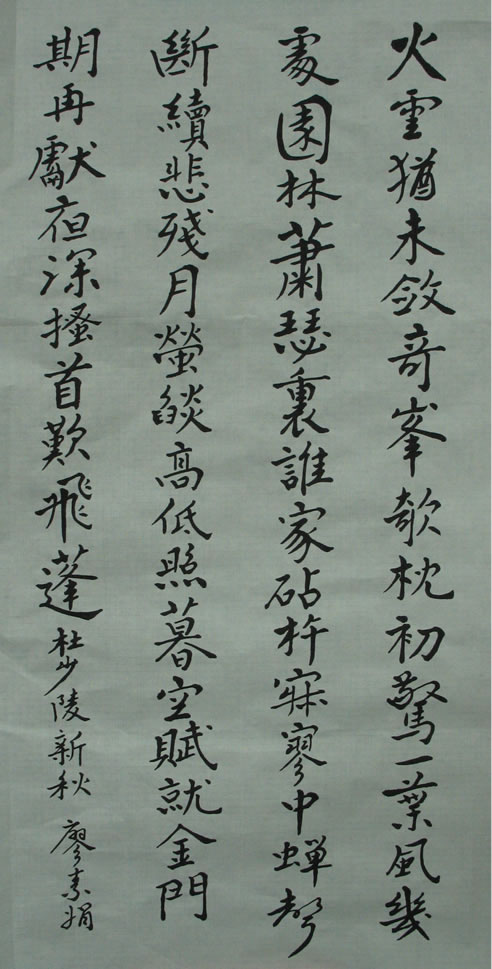 火雲猶未斂奇峯欹枕初驚一葉風幾
處園林蕭瑟裏誰家砧杵寂寥中蟬聲
斷續悲殘月螢燄高低照暮空賦就金門
期再獻夜深搔首歎飛蓬 杜少陵新秋 廖素娟